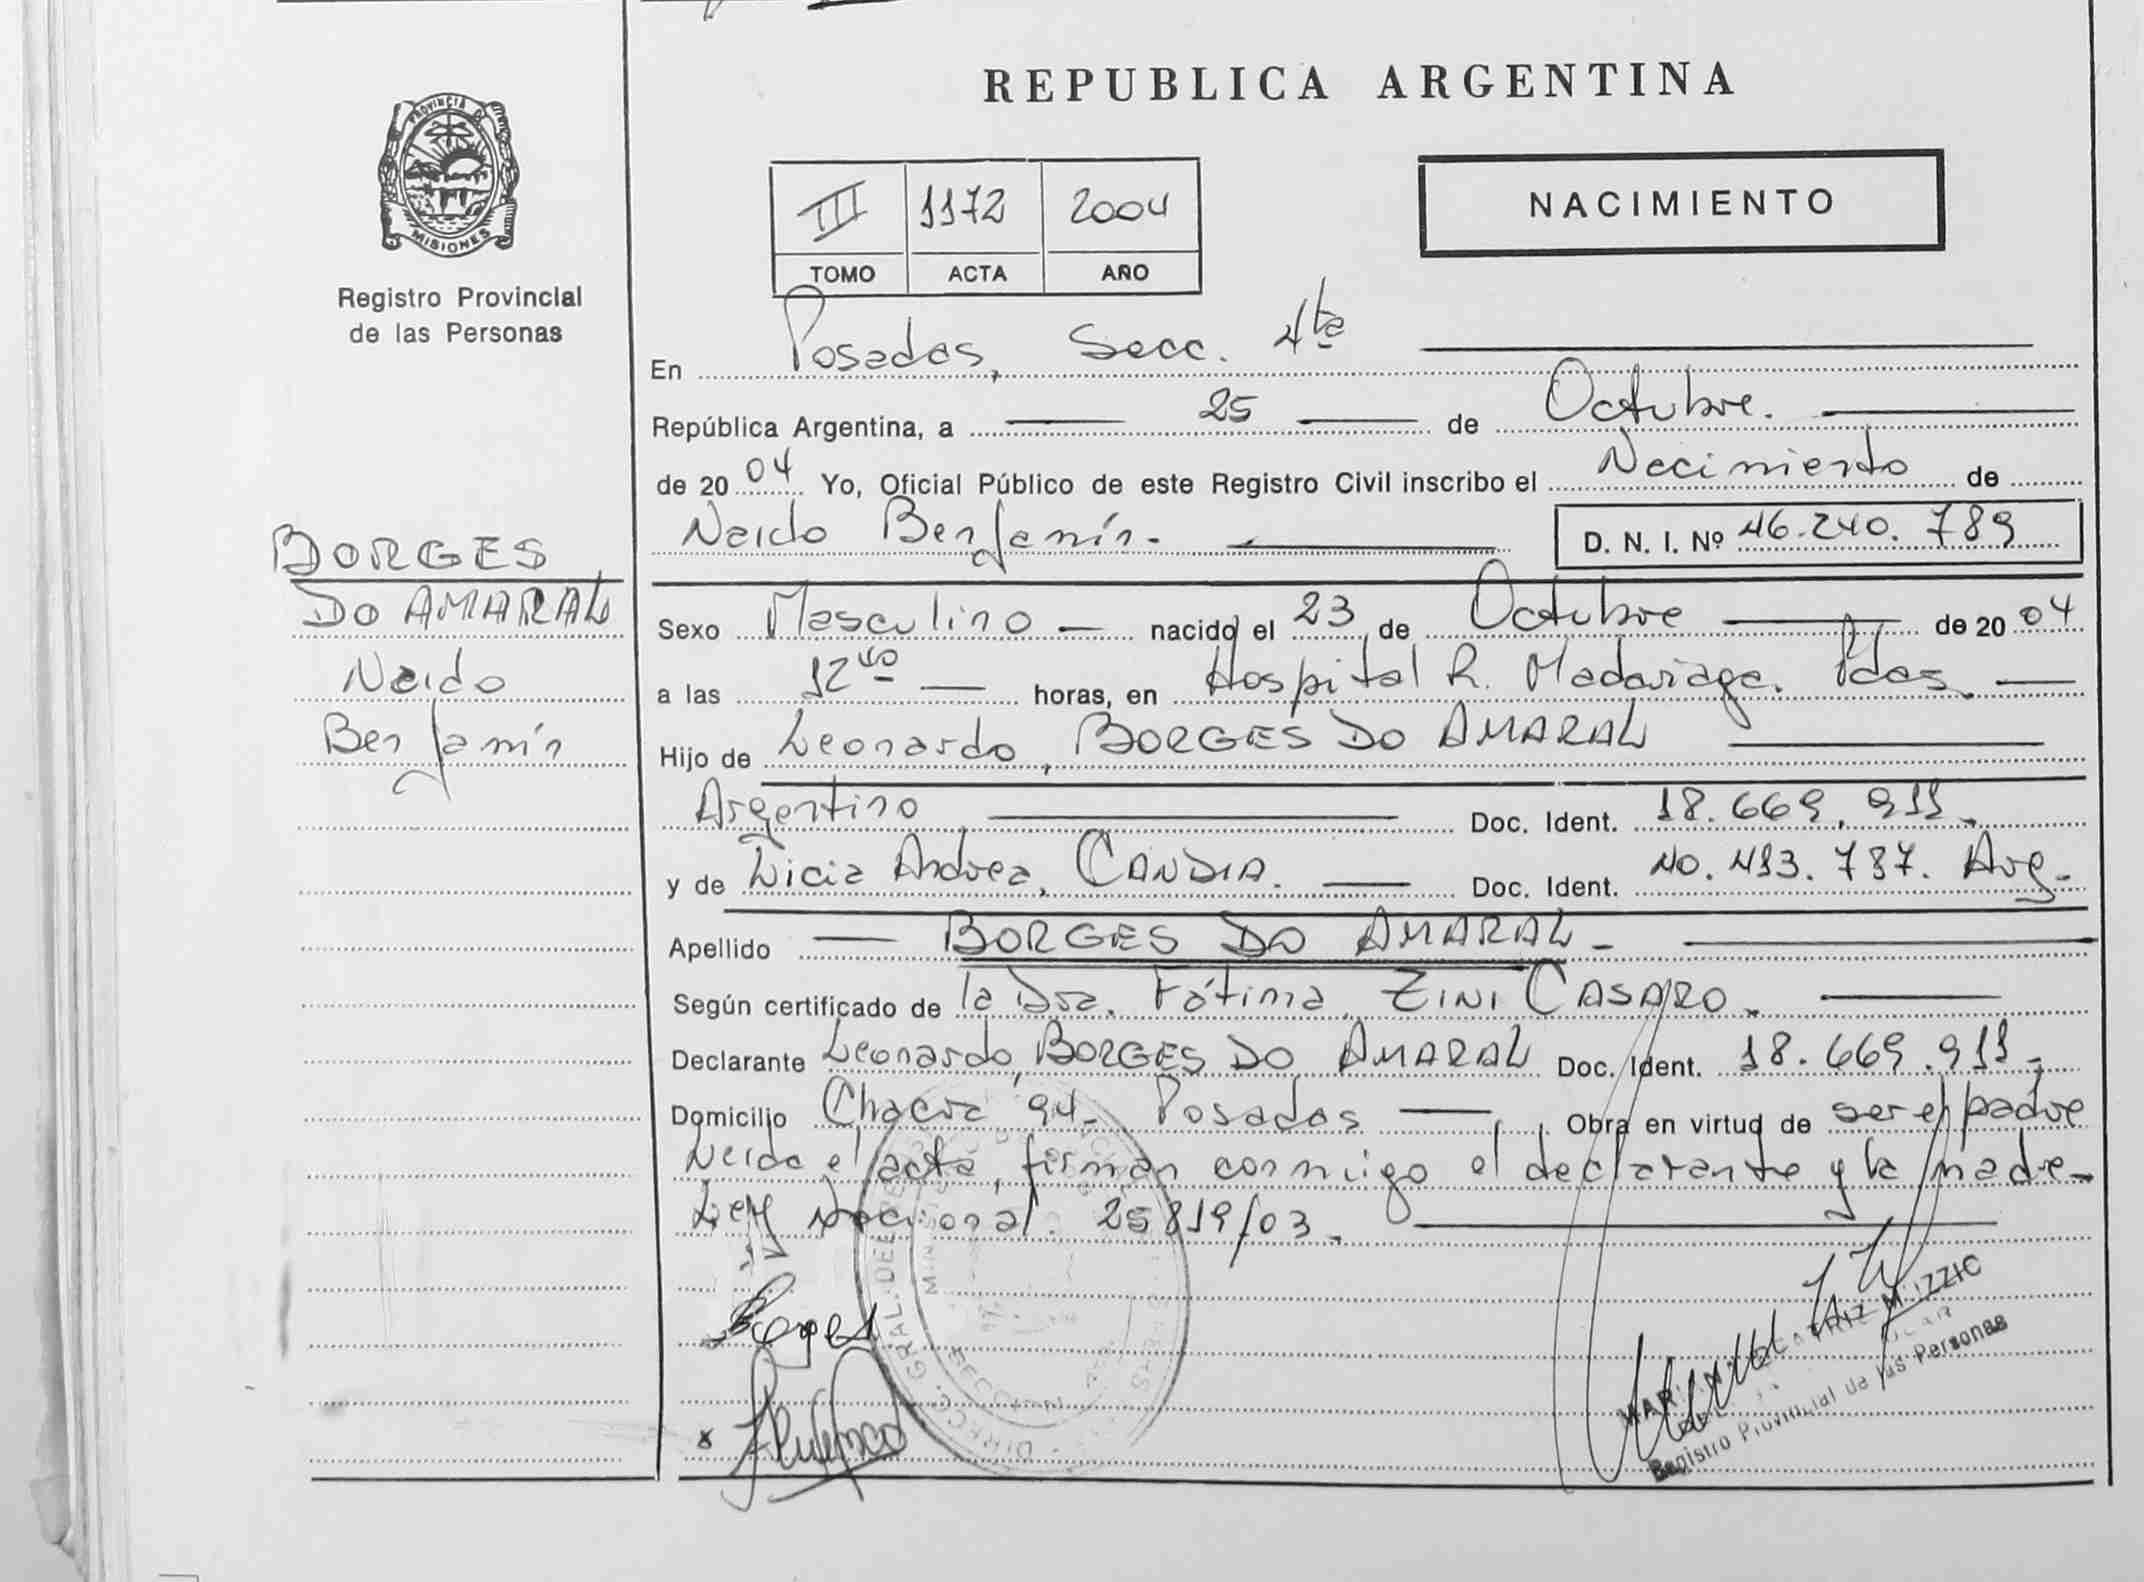 REPUBLICA ARGENTINA
PROVINCIA DE
MISIONES
Registro Provincial
de las Personas
III 1172 2004
TOMO ACTA AÑO
NACIMIENTO
En Posadas, Secc. 4ta
República Argentina, a 25 de Octubre.
de 2004 Yo, Oficial Público de este Registro Civil inscribo el Nacimiento de
Naido Benjamín. D. N. I. Nº 46.240.789
BORGES
DO AMARAL
Naido
Benjamín
Sexo Masculino nacido el 23 de Octubre de 2004
a las 12 horas, en Hospital R. Madariaga. Pdas.
Hijo de Leonardo, BORGES DO AMARAL
Argentino Doc. Ident. 18.669.911.
y de Licia Andrea, CANDIA. Doc. Ident. 40.413.787. Arg.
Apellido BORGES DO AMARAL
Según certificado de la Dra. Fátima ZINI CASARO.
Declarante Leonardo, BORGES DO AMARAL Doc. Ident. 18.669.911.
Domicilio Chacra 94. Posadas Obra en virtud de ser el padre
Leida el acta, firman conmigo el declarante y la madre
Ley Nacional. 25819/03.
Borges
Registro Provincial de las Personas